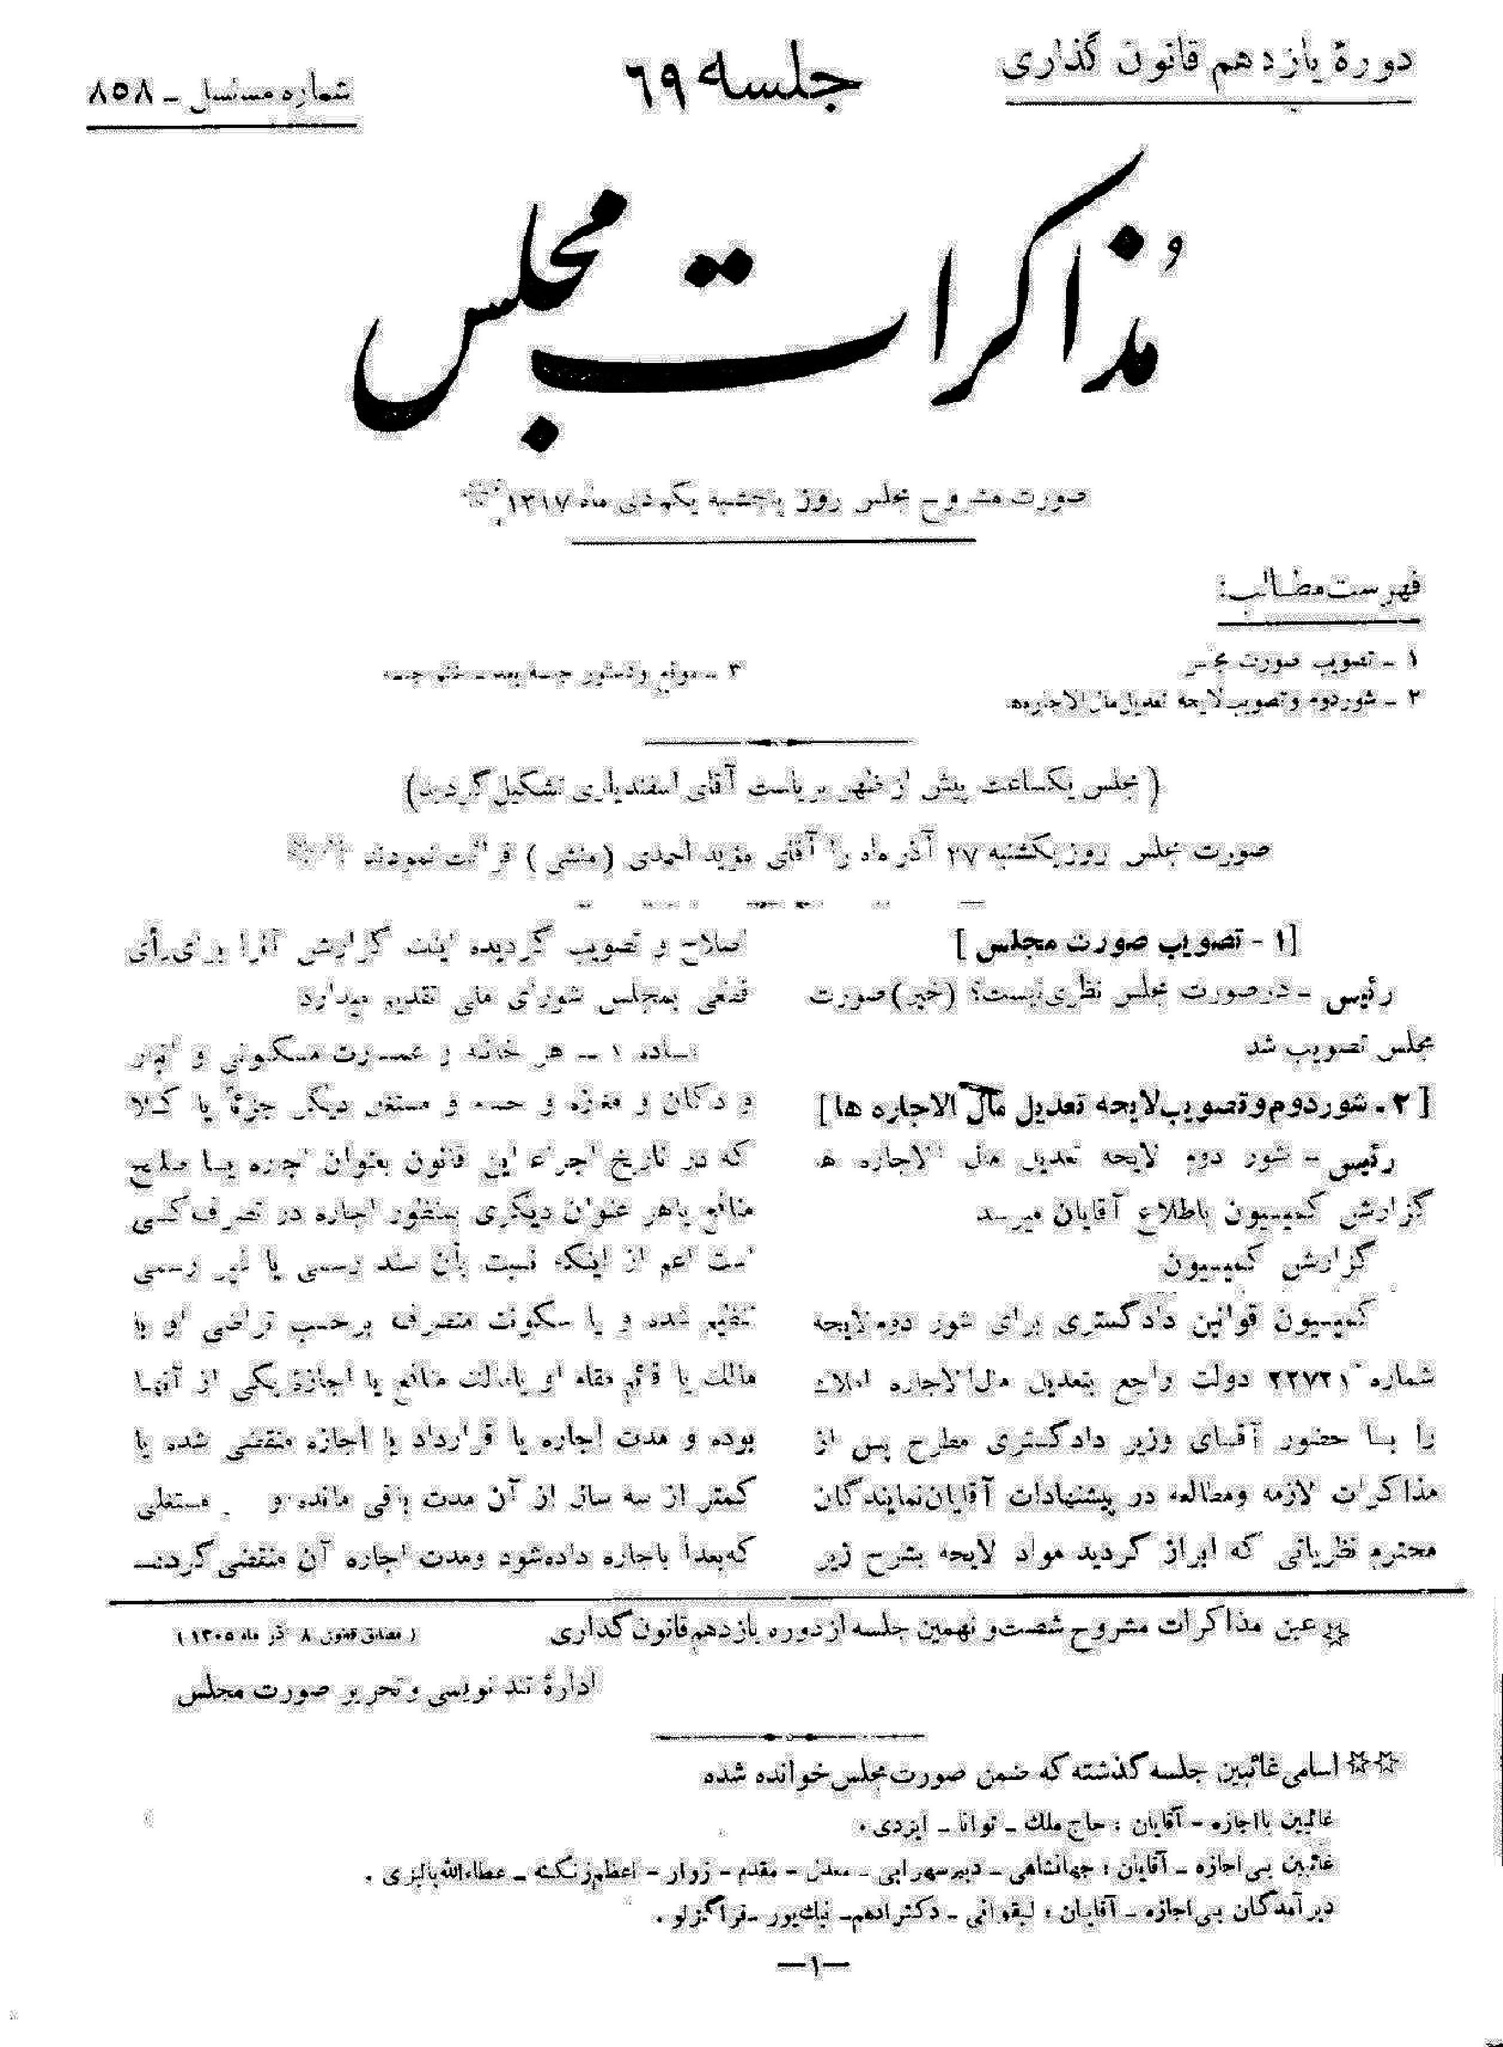 دورهٔ یازدهم قانون گذاری
جلسه ۶۹
شماره مسلسل ـ ۸۵۸
مذاکرات مجلس
صورت مشروح مجلس روز پنجشنبه یکم دی ماه ۱۳۱۷
فهرست مطالب:
۱ ـ تصویب صورت مجلس
۲ ـ شور دوم و تصویب لایحه تعدیل مال الاجاره‌ها
۳ ـ موقع و دستور جلسه بعد ـ ختم جلسه
(مجلس یکساعت پیش از ظهر بریاست آقای اسفندیاری تشکیل گردید)
صورت مجلس روز یکشنبه ۲۷ آذر ماه را آقای مؤید احمدی (منشی) قرائت نمودند
[۱ - تصویب صورت مجلس]
رئیس ـ در صورت مجلس نظری نیست؟ (خیر) صورت
مجلس تصویب شد
[۲ ـ شور دوم و تصویب لایحه تعدیل مال الاجاره ها]
رئیس ـ شور دوم لایحه تعدیل مال الاجاره ها
گزارش کمیسیون باطلاع آقایان میرسد
گزارش کمیسیون
کمیسیون قوانین دادگستری برای شور دوم لایحه
شماره ۲۲۷۲۱ دولت راجع بتعدیل مال‌الاجاره املاک
را بـا حضور آقـای وزیر دادگستری مطرح پس از
مذاکرات لازمه ومطالعه در پیشنهادات آقایان نمایندگان
محترم نظریاتی که ابراز گردید مواد لایحه بشرح زیر
اصلاح و تصویب گردیده اینک گزارش آنرا برای رأی
قطعی بمجلس شورای ملی تقدیم میدارد
مـاده ۱ ـ هر خانه و عمـارت مسکونی و انبار
و دکان و مغازه و حجره و مستغل دیگر جزءً یا کلا
که در تاریخ اجراء این قانون بعنوان اجاره یـا صلح
منافع یاهر عنوان دیگری بمنظور اجاره در تصرف کسی
است اعم از اینکه نسبت بآن سند رسمی یا غیر رسمی
تنظیم شده و یا سکونت متصرف برحسب تراضی او با
مالک یا قائم مقام او یامالک منافع یا اجازهٔ یکی از آنهـا
بوده و مدت اجاره یا قرارداد یا اجازه منقضی شده یا
کمتر از سه سال از آن مدت باقی مانده و مستغلی
که بعداً باجاره داده شود ومدت اجازه آن منقضی گردد
☆ عین مذاکرات مشروح شصت و نهمین جلسه از دوره یازدهم قانون گذاری
(مطابق قانون ۸ آذر ماه ۱۳۰۵)
ادارهٔ تند نویسی و تحریر صورت مجلس
☆☆ اسامی غائبین جلسه گذشته که ضمن صورت مجلس خوانده شده
غائبین بااجازه ـ آقایان : حاج ملک ـ توانا ـ ایزدی .
غائبین بی اجازه ـ آقایان : جهانشاهی ـ دبیرسهرابی ـ معدل ـ مقدم ـ زوار ـ اعظم زنگنه ـ عطاءالله پالیزی .
دیر آمدگان بی اجازه ـ آقایان : لیقوانی ـ دکتر ادهم ـ نیک‌پور ـ قراگزلو .
—۱—